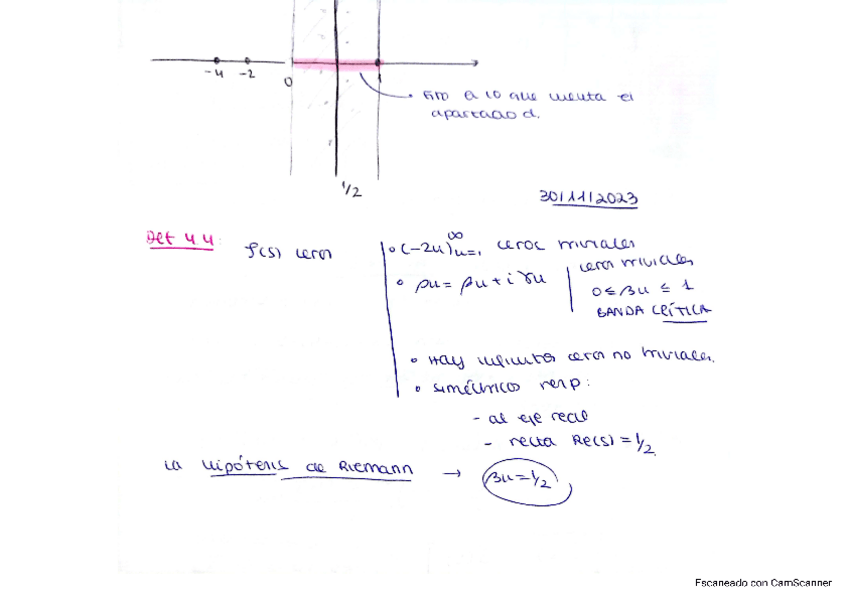 -4 -2 0
esto es lo que cuenta el
apartado d.
1/2
30/11/2023
Def 4.4 ζ(s) ceros
• (-2n)_{n=1}^∞ ceros triviales
• ρn = βn + i γn
ceros triviales
0 ≤ βn ≤ 1
BANDA CRÍTICA
• Hay infinitos ceros no triviales.
• simétricos resp:
- al eje real
- recta Re(s) = 1/2.
la Hipótesis de Riemann → βn = 1/2
Escaneado con CamScanner